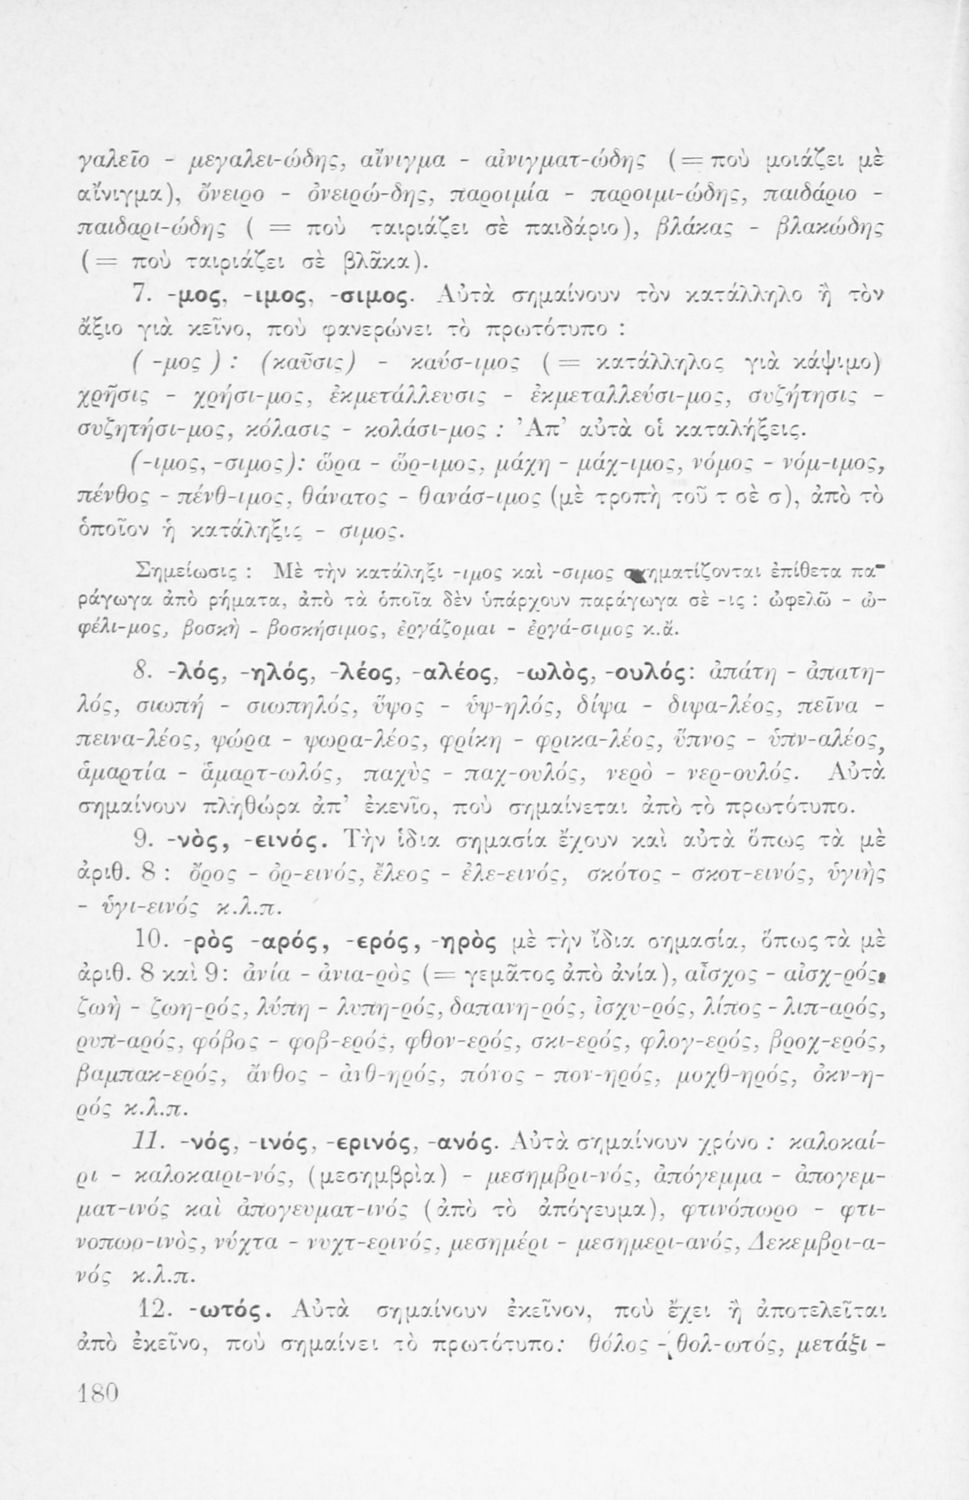 γαλεῖο - μεγαλει-ώδης, αἴνιγμα - αἰνιγματ-ώδης (= ποὺ μοιάζει μὲ
αἴνιγμα), ὄνειρο - ὀνειρώ-δης, παροιμία - παροιμι-ώδης, παιδάριο -
παιδαρι-ώδης ( = ποὺ ταιριάζει σὲ παιδάριο), βλάκας - βλακώδης
(= ποὺ ταιριάζει σὲ βλᾶκα).
7. -μος, -ιμος, -σιμος. Αὐτὰ σημαίνουν τὸν κατάλληλο ἢ τὸν
ἄξιο γιὰ κεῖνο, ποὺ φανερώνει τὸ πρωτότυπο :
( -μος ) : (καῦσις) - καύσ-ιμος (= κατάλληλος γιὰ κάψιμο)
χρῆσις - χρήσι-μος, ἐκμετάλλευσις - ἐκμεταλλεύσι-μος, συζήτησις -
συζητήσι-μος, κόλασις - κολάσι-μος : Ἀπ' αὐτὰ οἱ καταλήξεις.
(-ιμος, -σιμος): ὥρα - ὥρ-ιμος, μάχη - μάχ-ιμος, νόμος - νόμ-ιμος,
πένθος - πένθ-ιμος, θάνατος - θανάσ-ιμος (μὲ τροπὴ τοῦ τ σὲ σ), ἀπὸ τὸ
ὁποῖον ἡ κατάληξις - σιμος.
Σημείωσις : Μὲ τὴν κατάληξι -ιμος καὶ -σιμος σχηματίζονται ἐπίθετα πα-
ράγωγα ἀπὸ ρήματα, ἀπὸ τὰ ὁποῖα δὲν ὑπάρχουν παράγωγα σὲ -ις : ὠφελῶ - ὠ-
φέλι-μος, βοσκὴ - βοσκήσιμος, ἐργάζομαι - ἐργά-σιμος κ.ἄ.
8. -λός, -ηλός, -λέος, -αλέος, -ωλὸς, -ουλός: ἀπάτη - ἀπατη-
λός, σιωπή - σιωπηλός, ὕψος - ὑψ-ηλός, δίψα - διψα-λέος, πεῖνα -
πεινα-λέος, ψώρα - ψωρα-λέος, φρίκη - φρικα-λέος, ὕπνος - ὑπν-αλέος,
ἁμαρτία - ἁμαρτ-ωλός, παχὺς - παχ-ουλός, νερὸ - νερ-ουλός. Αὐτὰ
σημαίνουν πληθώρα ἀπ' ἐκενῖο, ποὺ σημαίνεται ἀπὸ τὸ πρωτότυπο.
9. -νὸς, -εινός. Τὴν ἱδια σημασία ἔχουν καὶ αὐτὰ ὅπως τὰ μὲ
ἀριθ. 8 : ὄρος - ὀρ-εινός, ἔλεος - ἐλε-εινός, σκότος - σκοτ-εινός, ὑγιὴς
- ὑγι-εινός κ.λ.π.
10. -ρὸς -αρός, -ερός, -ηρὸς μὲ τὴν ἴδια σημασία, ὅπως τὰ μὲ
ἀριθ. 8 καὶ 9: ἀνία - ἀνια-ρὸς (= γεμᾶτος ἀπὸ ἀνία), αἶσχος - αἰσχ-ρός,
ζωὴ - ζωη-ρός, λύπη - λυπη-ρός, δαπανη-ρός, ἰσχυ-ρός, λίπος - λιπ-αρός,
ρυπ-αρός, φόβος - φοβ-ερός, φθον-ερός, σκι-ερός, φλογ-ερός, βροχ-ερός,
βαμπακ-ερός, ἄνθος - ἀνθ-ηρός, πόνος - πον-ηρός, μοχθ-ηρός, ὀκν-η-
ρός κ.λ.π.
11. -νός, -ινός, -ερινός, -ανός. Αὐτὰ σημαίνουν χρόνο : καλοκαί-
ρι - καλοκαιρι-νός, (μεσημβρὶα) - μεσημβρι-νός, ἀπόγεμμα - ἀπογεμ-
ματ-ινός καὶ ἀπογευματ-ινός (ἀπὸ τὸ ἀπόγευμα), φτινόπωρο - φτι-
νοπωρ-ινὸς, νύχτα - νυχτ-ερινός, μεσημέρι - μεσημερι-ανός, Δεκεμβρι-α-
νός κ.λ.π.
12. -ωτός. Αὐτὰ σημαίνουν ἐκεῖνον, ποὺ ἔχει ἢ ἀποτελεῖται
ἀπὸ ἐκεῖνο, ποὺ σημαίνει τὸ πρωτότυπο: θόλος - θολ-ωτός, μετάξι -
180